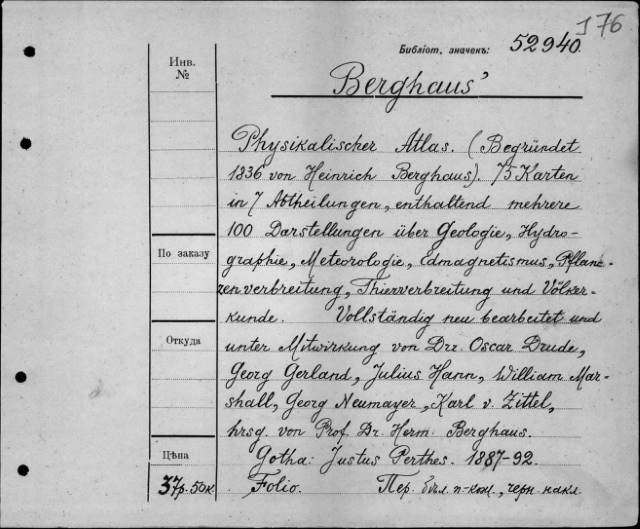 I 76
Библіот. значекъ: 52940.
Инв.
№
Berghaus'
Physikalischer Atlas. (Begründet
1836 von Heinrich Berghaus). 75 Karten
in 7 Abtheilungen, enthaltend mehrere
100 Darstellungen über Geologie, Hydro-
graphie, Meteorologie, Edmagnetismus, Pflan-
zenverbreitung, Thierverbreitung und Völker-
kunde. Vollständig neu bearbeitet und
unter Mitwirkung von Drr. Oscar Drude,
Georg Gerland, Julius Hann, William Mar-
shall, Georg Neumayer, Karl v. Zittel,
hrsg. von Prof. Dr. Herm. Berghaus.
Gotha: Justus Perthes. 1887-92.
Folio. Пер. черн. накл.
По заказу
Откуда
Цѣна
37р. 50к